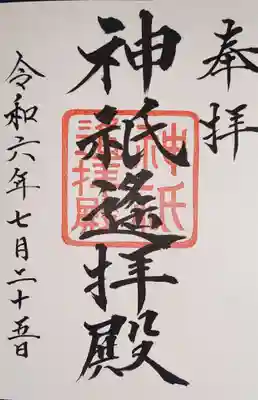 奉拝
神祇遥拝殿
令和六年七月二十五日
神祇
遥拝殿